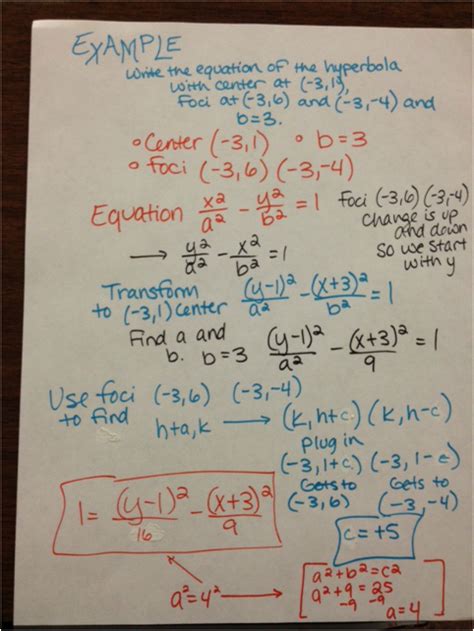 EXAMPLE
Write the equation of the hyperbola
with center at (-3,1),
Foci at (-3,6) and (-3,-4) and
b=3.
° Center (-3,1) ° b=3
° Foci (-3,6) (-3,-4)
Equation x²/a² - y²/b² = 1
Foci (-3,6) (-3,-4)
change is up
and down
so we start
with y
→ y²/a² - x²/b² = 1
Transform
to (-3,1) center
(y-1)²/a² - (x+3)²/b² = 1
Find a and
b. b=3 (y-1)²/a² - (x+3)²/9 = 1
Use foci (-3,6) (-3,-4)
to find
h+a,k → (k,h+c) (k,h-c)
plug in
(-3,1+c) (-3,1-c)
Gets to Gets to
(-3,6) (-3,-4)
c=+5
1 = (y-1)²/16 - (x+3)²/9
a²=4² →
a²+b²=c²
a²+9=25
-9 -9
a=4